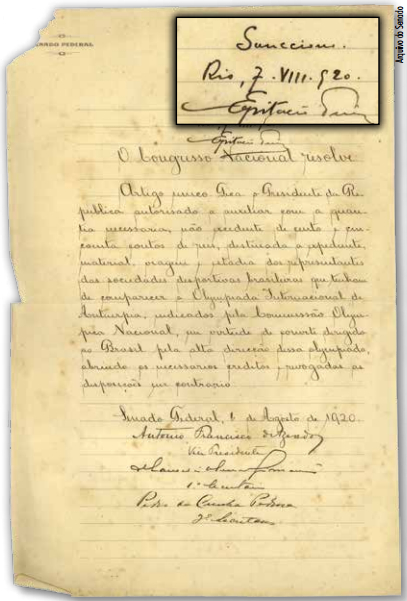 Arquivo do Senado
SENADO FEDERAL
Sancciono.
Rio, 7. VIII. 920.
Epitacio
Epitacio
O Congresso Nacional resolve
Artigo unico Fica o Presidente da Re-
publica autorisado a auxiliar com a quan-
tia necessaria, não excedente de cento e cin-
coenta contos de reis, destinada a expediente,
material, viagem e estadia dos representantes
das sociedades desportivas brasileiras que tenham
de comparecer á Olympiada Internacional de
Antuerpia, indicados pela Commissão Olym-
pica Nacional, em virtude de convite dirigido
ao Brasil pela alta direcção dessa olympiada,
abrindo os necessarios creditos e revogadas as
disposições em contrario
Senado Federal, 6 de Agosto de 1920.
Antonio Francisco de Azeredo
Vice Presidente
1º Secretario
Pedro da Cunha Pedrosa
2º Secretario